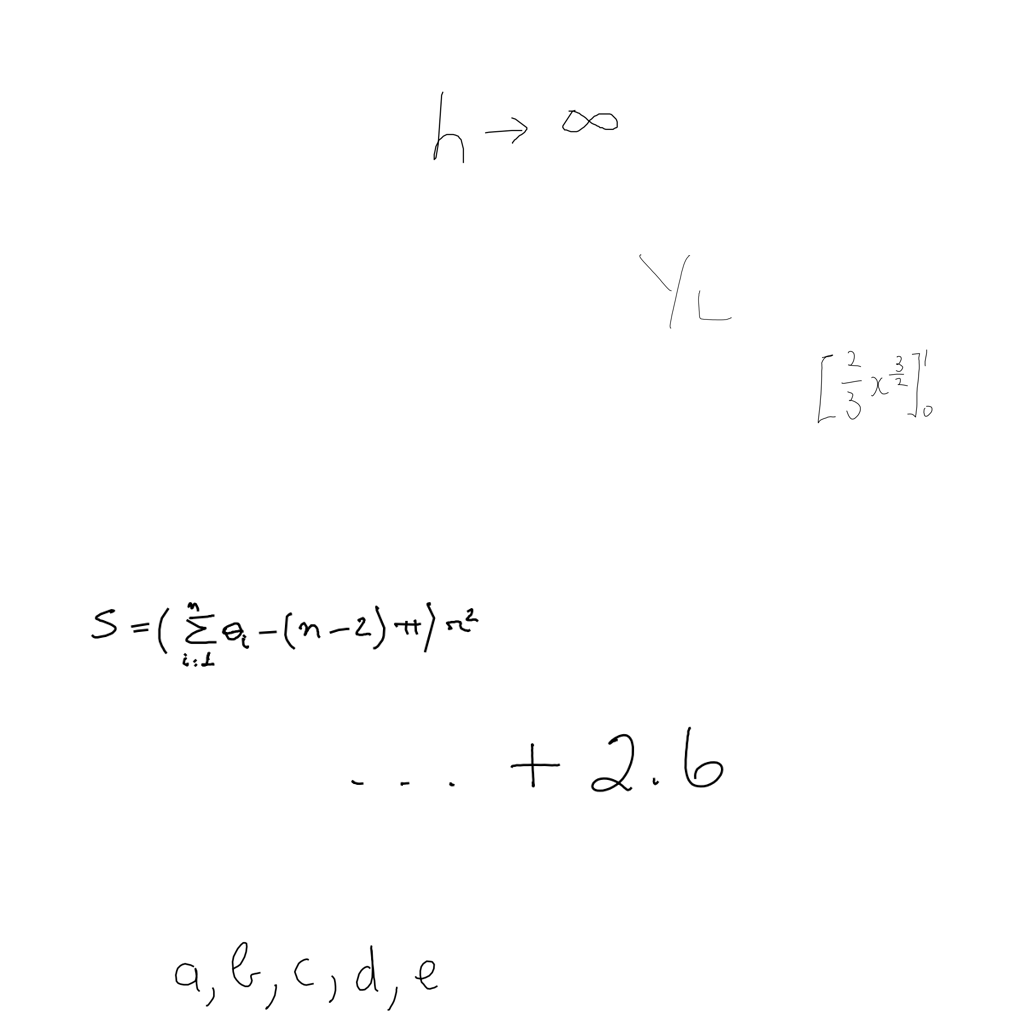 h → ∞
Y/L
[2/3 x^{3/2}]_0^1
S = (∑_{i=1}^{n} θ_i − (n − 2) π) r^2
... + 2.6
a, b, c, d, e